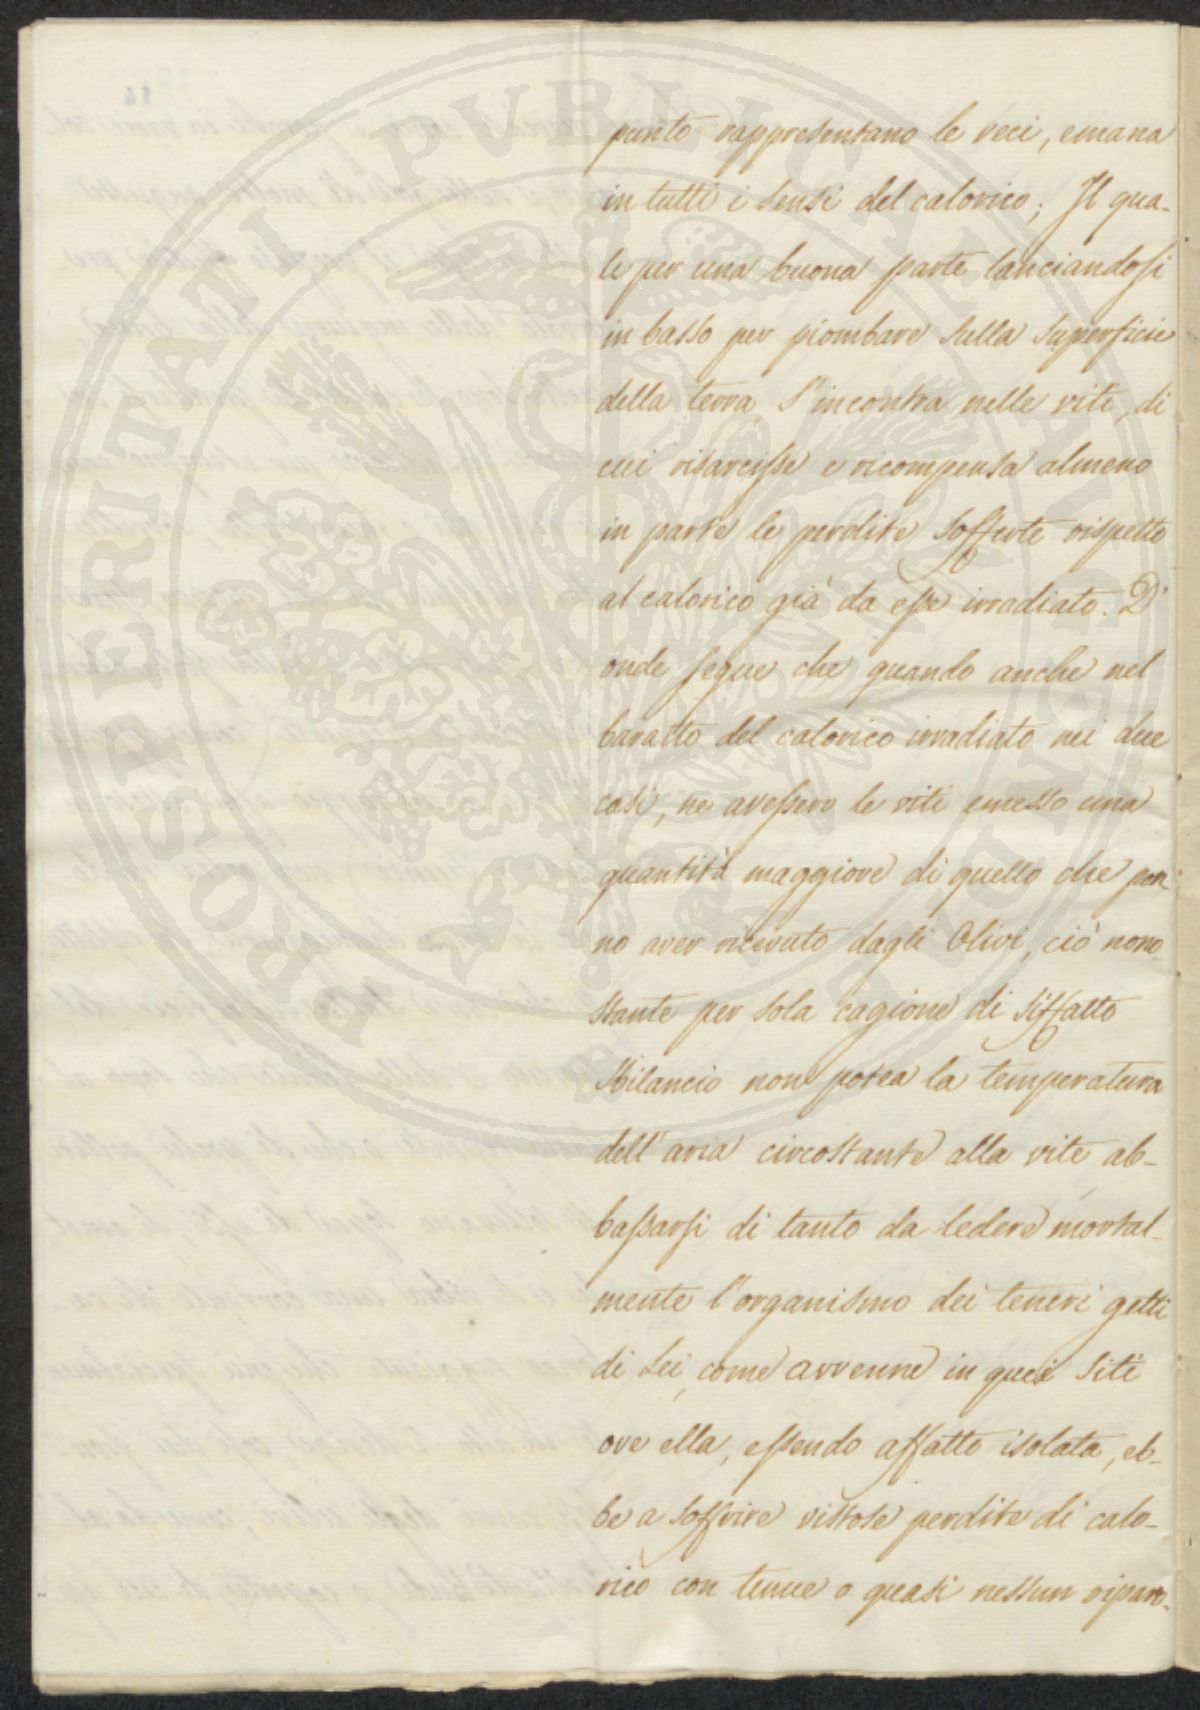 punto rappresentano le veci, emana
in tutti i sensi del calorico; Il qua-
le per una buona parte lanciandosi
in basso per piombare sulla superficie
della terra, s'incontra nelle viti, di
cui risarcisse e ricompensa almeno
in parte le perdite sofferte rispetto
al calorico già da esse irradiato. D'
onde segue che quando anche nel
baratto del calorico irradiato nei due
casi, ne avessero le viti emesso una
quantità maggiore di quello che pon
no aver ricevuto dagli Olivi, ciò nono-
stante per sola cagione di siffatto
sbilancio non potea la temperatura
dell'aria circostante alla vite ab-
bassarsi di tanto da ledere mortal-
mente l'organismo dei teneri getti
di Lei, come avvenne in quei siti
ove ella, essendo affatto isolata, eb-
be a soffrire vistose perdite di calo-
rico con tenue o quasi nessun riparo.
PROSPERITATI PUBLICAE